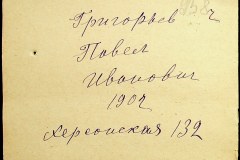 Григорьев
Павел
Иванович
1904
Херсонская 132